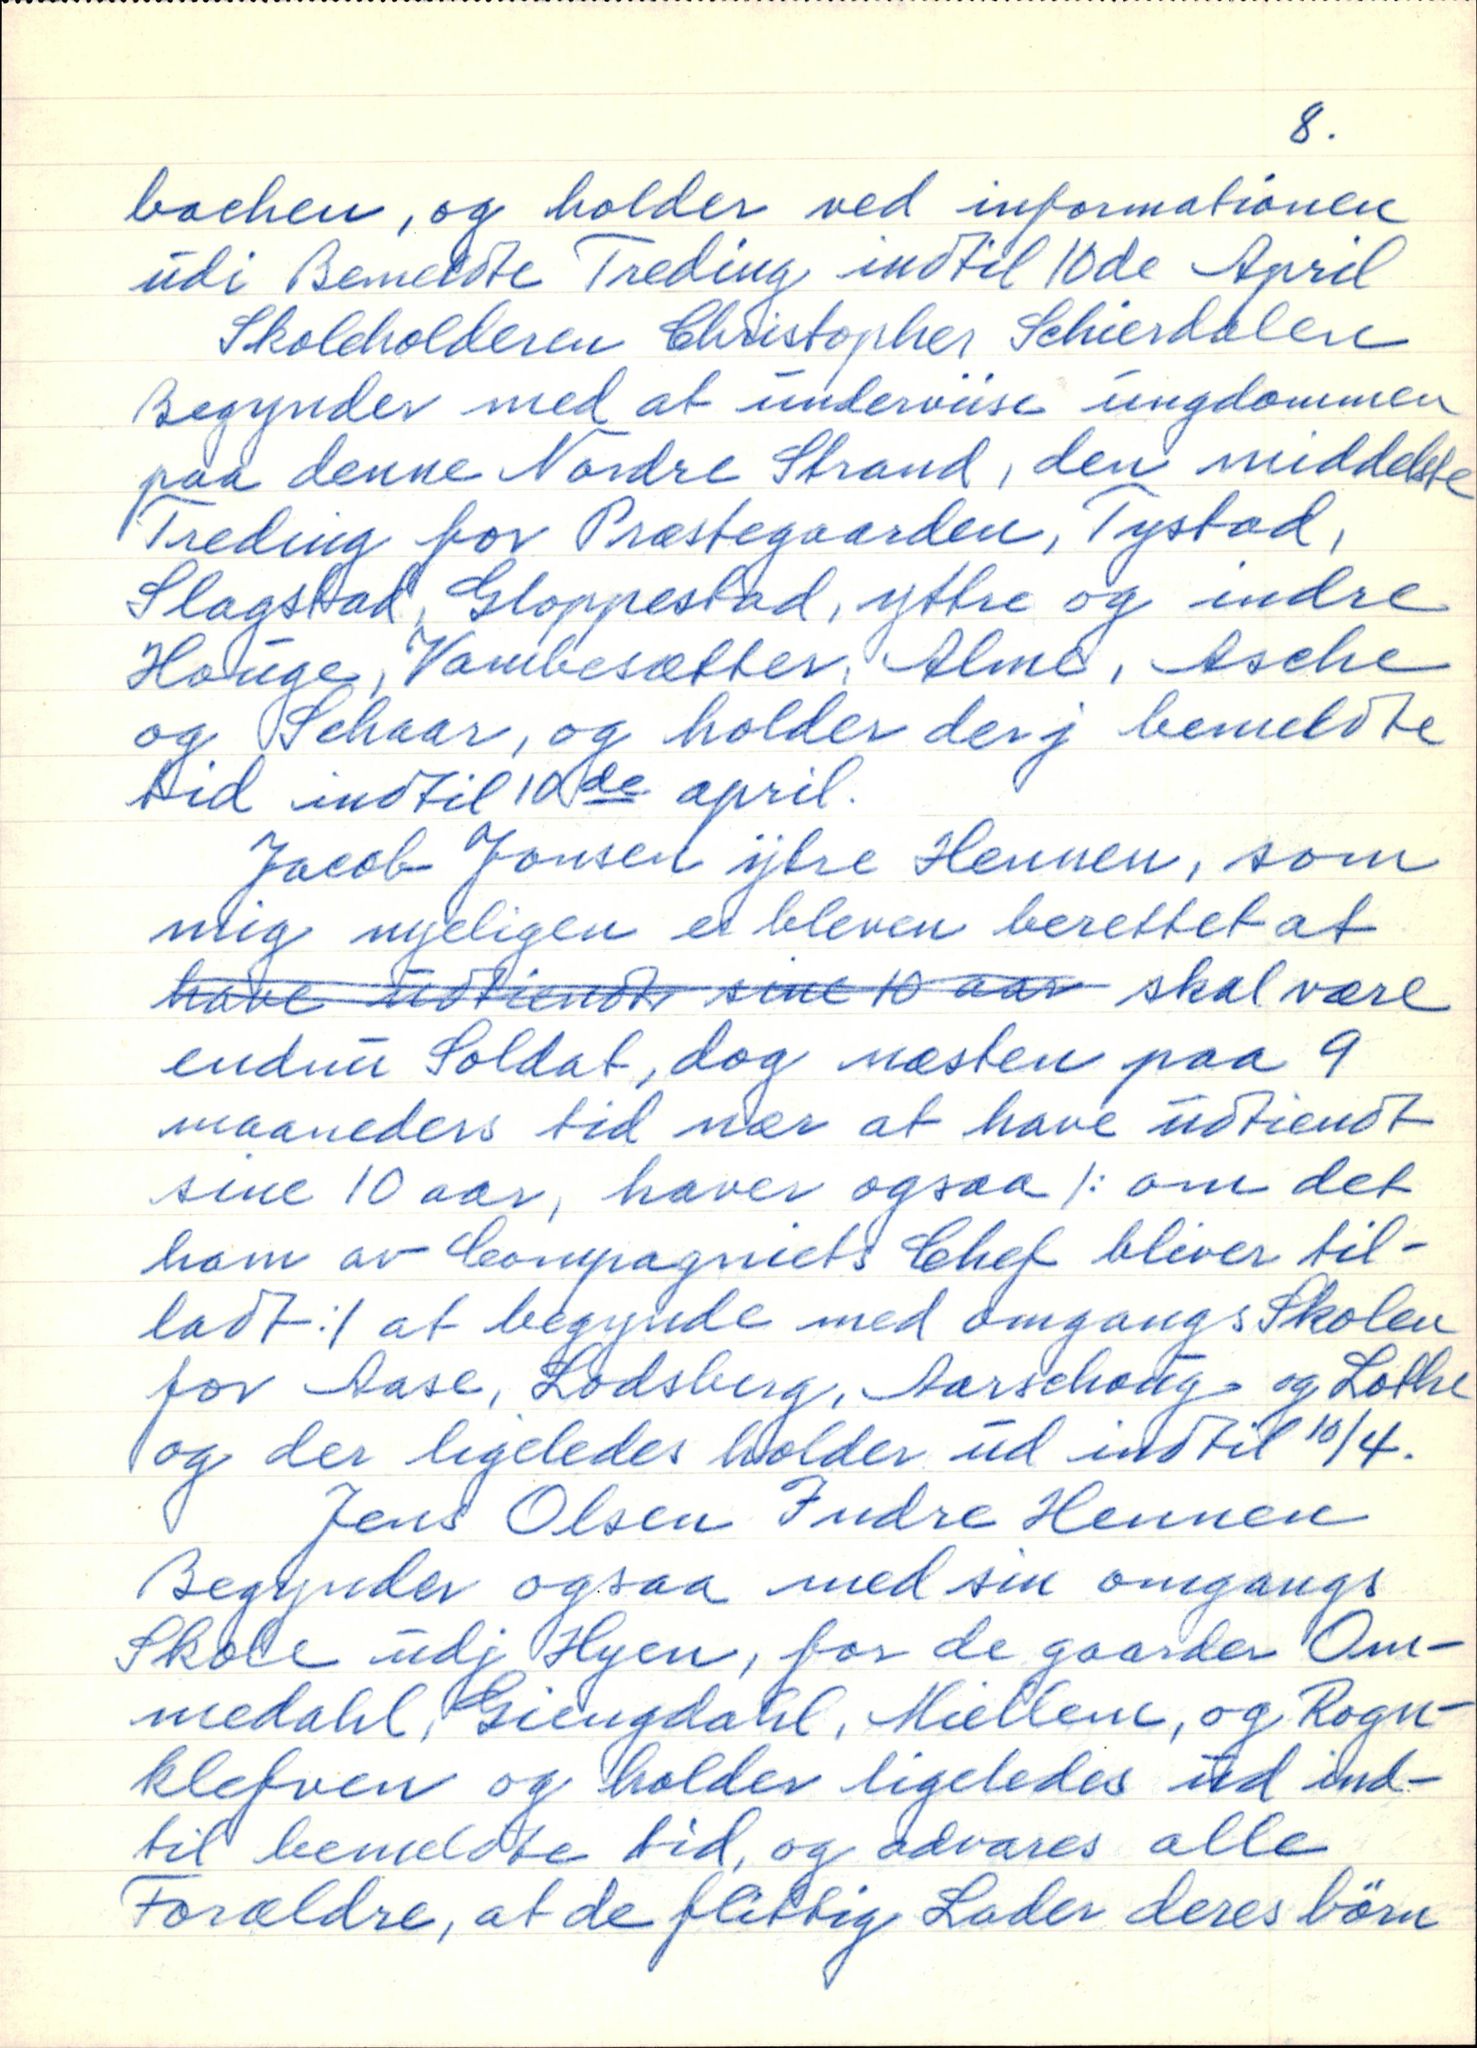 8.
bachen, og holder ved informationen
udi Bemeldte Treding indtil 10de April
Skoleholderen Christopher Schierdalen
Begynder med at underviise ungdommen
paa denne Nordre Strand, den middelste
Treding for Præstegaarden, Tystad,
Slagstad, Gloppestad, yttre og indre
Houge, Vambesætter, Alme, Asche
og Schaar, og holder derj bemeldte
tid indtil 10de april.
Jacob Jonsen ÿtre Hennen, som
mig nyeligen er bleven berettet at
have udtiendt sine 10 aar skal være
endnu Soldat, dog næsten paa 9
maaneders tid nær at have udtiendt
sine 10 aar, haver ogsaa /: om det
ham av Compagniets Chef bliver til-
ladt :/ at begynde med omgangs Skolen
for Aase, Lodsberg, Aarschoug og Lothe
og der ligeledes holder ud indtil 10/4.
Jens Olsen Indre Hennen
Begynder ogsaa med sin omgangs
Skole udj Hyen, for de gaarder Om-
medahl, Giengdahl, Miellem, og Rogn-
klefven og holder ligeledes ud ind-
til bemeldte tid, og advares alle
Forældre, at de flittig Lader deres börn